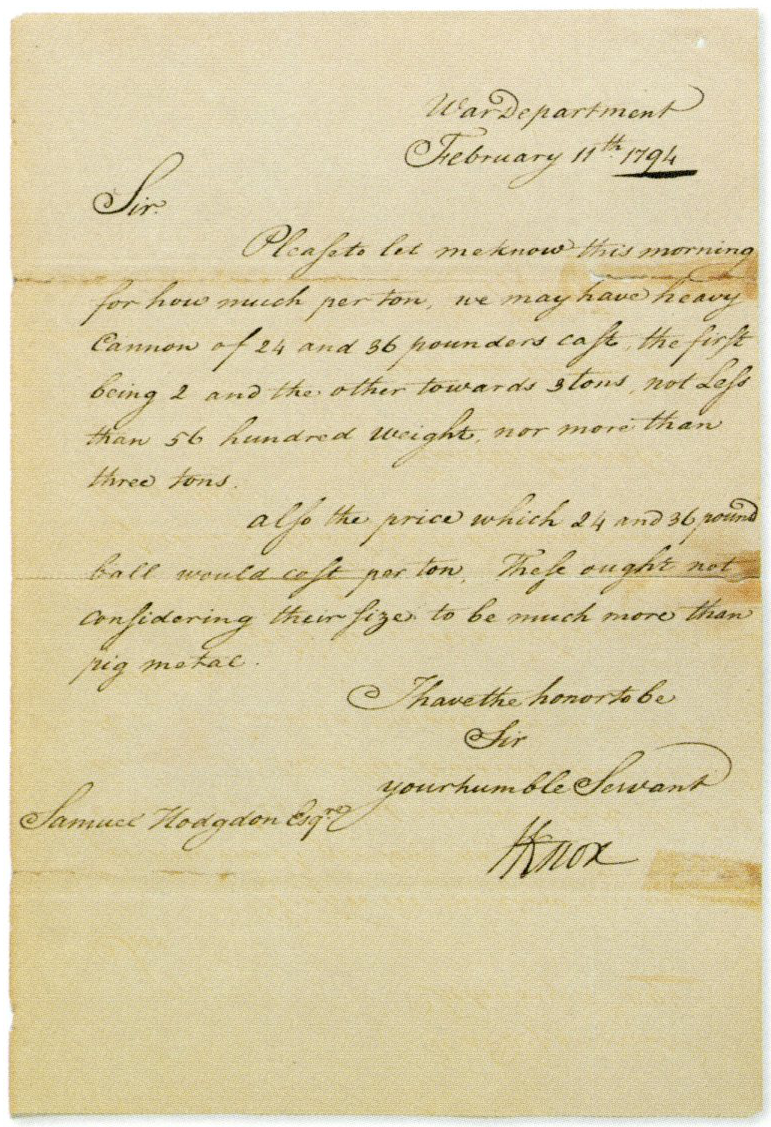 War Department
February 11th 1794
Sir.
Please to let me know this morning
for how much per ton, we may have heavy
Cannon of 24 and 36 pounders cast, the first
being 2 and the other towards 3 tons, not Less
than 56 hundred weight, nor more than
three tons.
also the price which 24 and 36 pound
ball would cost per ton. These ought not
considering their size to be much more than
pig metal.
I have the honor to be
Sir
your humble Servant
Samuel Hodgdon Esqre
HKnox